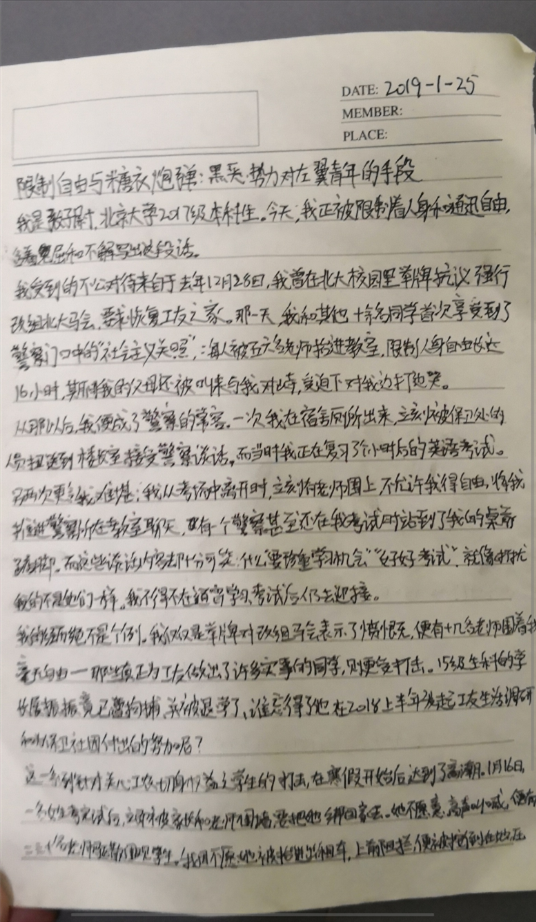 DATE: 2019-1-25
MEMBER:
PLACE:
限制自由与糖衣炮弹:黑恶势力对左翼青年的手段
我是 北京大学2017级本科生。今天,我正被限制着人身和通讯自由,
冤屈和不解写出这段话。
我受到的不公对待来自于去年12月28日,我曾在北大校园里举牌抗议强行
改组北大马会,要求恢复工友之家。那一天,我和其他十余名同学首次享受到了
警察口中的"社会主义关照",每人被五六名老师拖进教室,限制人身自由长达
16小时,期间我的父母还被叫来与我对峙,受迫下对我边打边哭。
从那以后,我便成了警察的常客。一次我在宿舍厕所出来,立刻被保卫处的
人员扭送到 接受警察谈话,而当时我正在复习 个小时后的英语考试。
两次更 我从考场中离开时,立刻被老师围上,不允许我得自由,将我
推进警察所在教室聊天,更有一个警察甚至还在我考试时站到了我的桌前
而这些谈话的内容却十分可笑:什么"要珍重学习机会""好好考试",就像打扰
我的不是他们一样。我不得不在 学习、考试后仍去迎接。
我的经历绝不是个例。我仅仅是举牌对改组马会表示了愤慨,便有十几名老师围着我
毫无自由——那些真正为工友做出了许多实事的同学,则更受打击。15级生科的学
长展振振竟已遭拘捕,并被退学了,谁忘得了他在2018上半年发起工友生活调研
和 保卫社团付出的努力呢?
这一系列针对关心工农切身 学生的打击,在寒假开始后达到了高潮。1月16日,
一名女生考完试后,立刻被家长和老师围堵,要把她绑回家去。她不愿意,高声叫喊,便有
二三十名老师 围观学生。我因不愿她被拖进出租车,上前阻拦,便被 到在地压